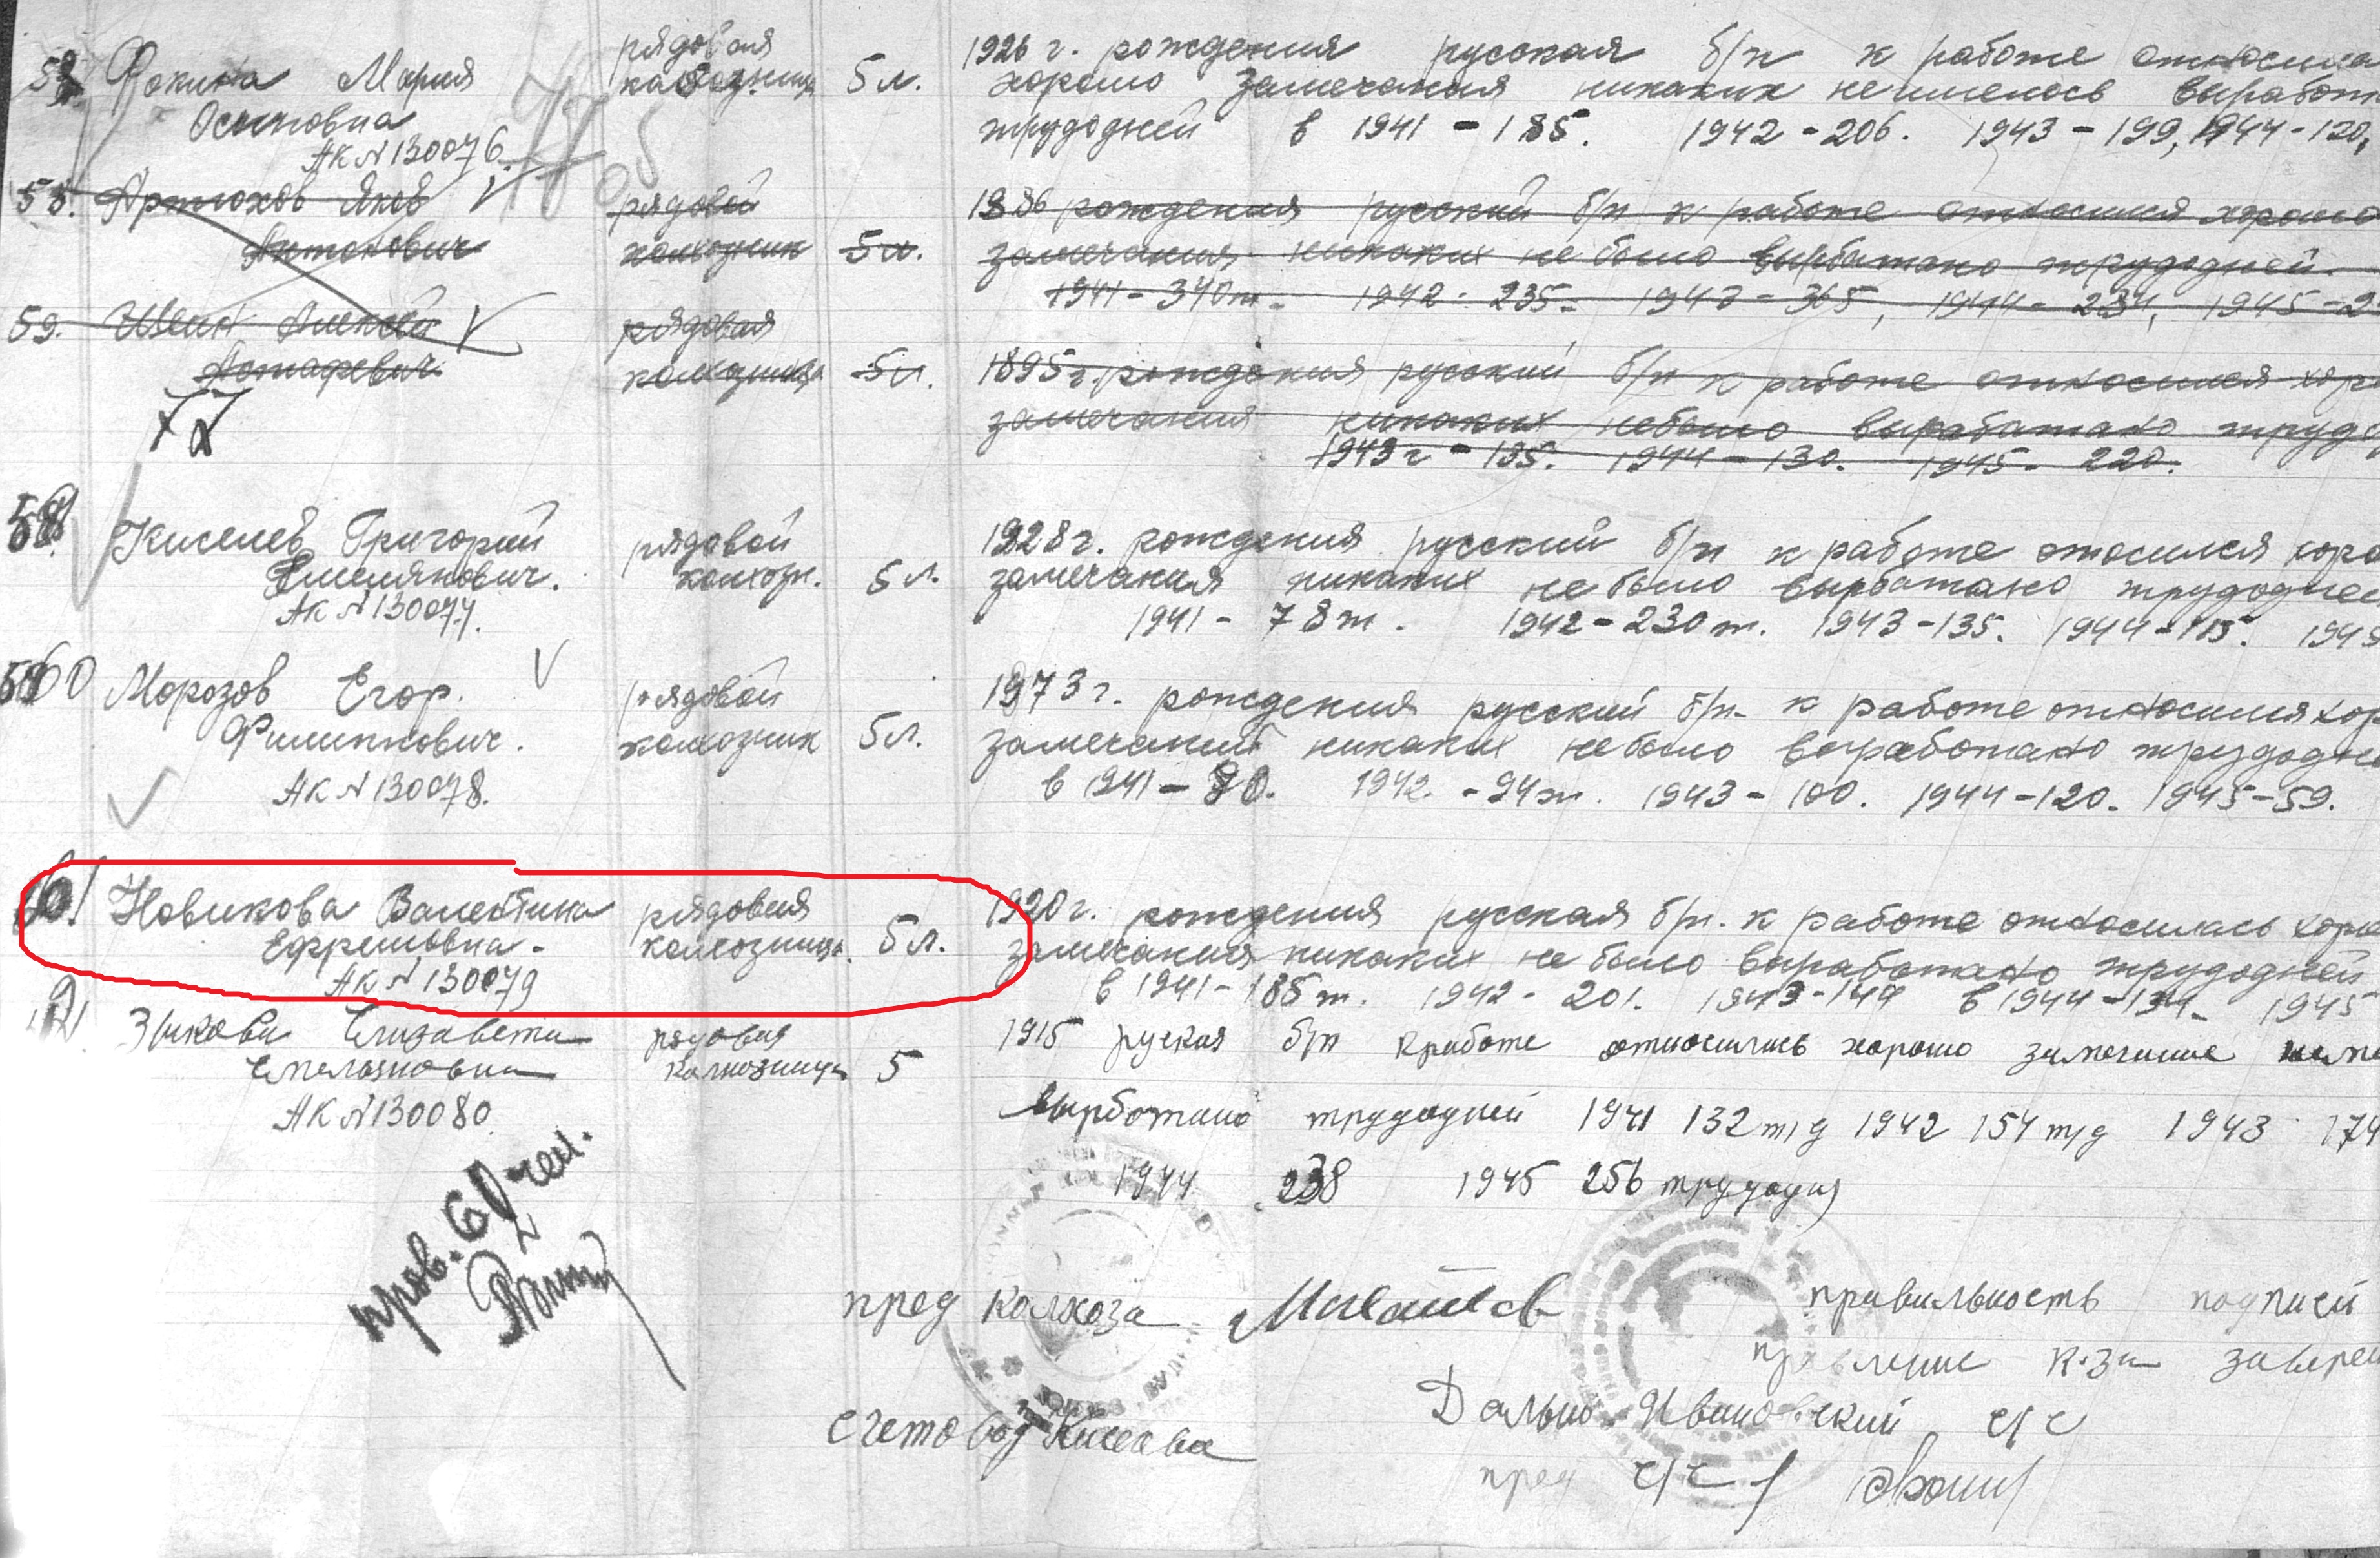 Фокина Мария рядовая колхозница 5 л. 1926 г. рождения русская б/п к работе относила
Осиповна хорошо замечания никаких не имелось выработ
АК N 130076. трудодней в 1941 - 185. 1942 - 206. 1943 - 199, 1944 - 120,
58. Артюхов Яков рядовой 1886 рождения русский б/п к работе относился хорошо
Антонович колхозник 5 л. замечания никаких не было вырбатано трудодней.
1941 - 340 т. 1942 - 235. 1943 - 365, 1944 - 284, 1945 - 2
59. Алексей рядовая
колхозница 5 л. 1895 г. рождения русский б/п к работе относился хоро
замечания никаких небыло выработано трудо
1943 г - 135. 1944 - 130. 1945 - 220.
Киселев Григорий рядовой 1928 г. рождения русский б/п к работе относился хоро
Емельянович. колхозн. 5 л. замечания никаких не было вырбатано трудодне
АК N 130077. 1941 - 78 т. 1942 - 230 т. 1943 - 135. 1944 - 115. 1945
60 Морозов Егор. рядовой 1973 г. рождения русский б/п. к работе относился хор
Филиппович. колхозник 5 л. замечаний никаких небыло выработано трудодне
АК N 130078. в 1941 - 80. 1942. - 94 т. 1943 - 100. 1944 - 120. 1945 - 59.
61 Новикова Валентина рядовая 1920 г. рождения русская б/п. к работе относилась хоро
Ефремовна - колхозница. 5 л. замечания никаких не было выработано трудодней
АК N 130079 в 1941 - 185 т. 1942 - 201. 1943 - 149 в 1944 - 194 1945
Зыкова Елизавета рядовая 1915 руская б/п к работе относилась хорошо замечание
Емельяновна колхозница 5
АК N 130080 вырботано трудодней 1941 132 т/д 1942 154 т/д 1943 174
1944 238 1945 256 трудодня
пров. 60 чел.
пред колхоза правильность подписей
правление к-за завере
Дально Ивановский с/с
счетовод Киселева
пред с/с